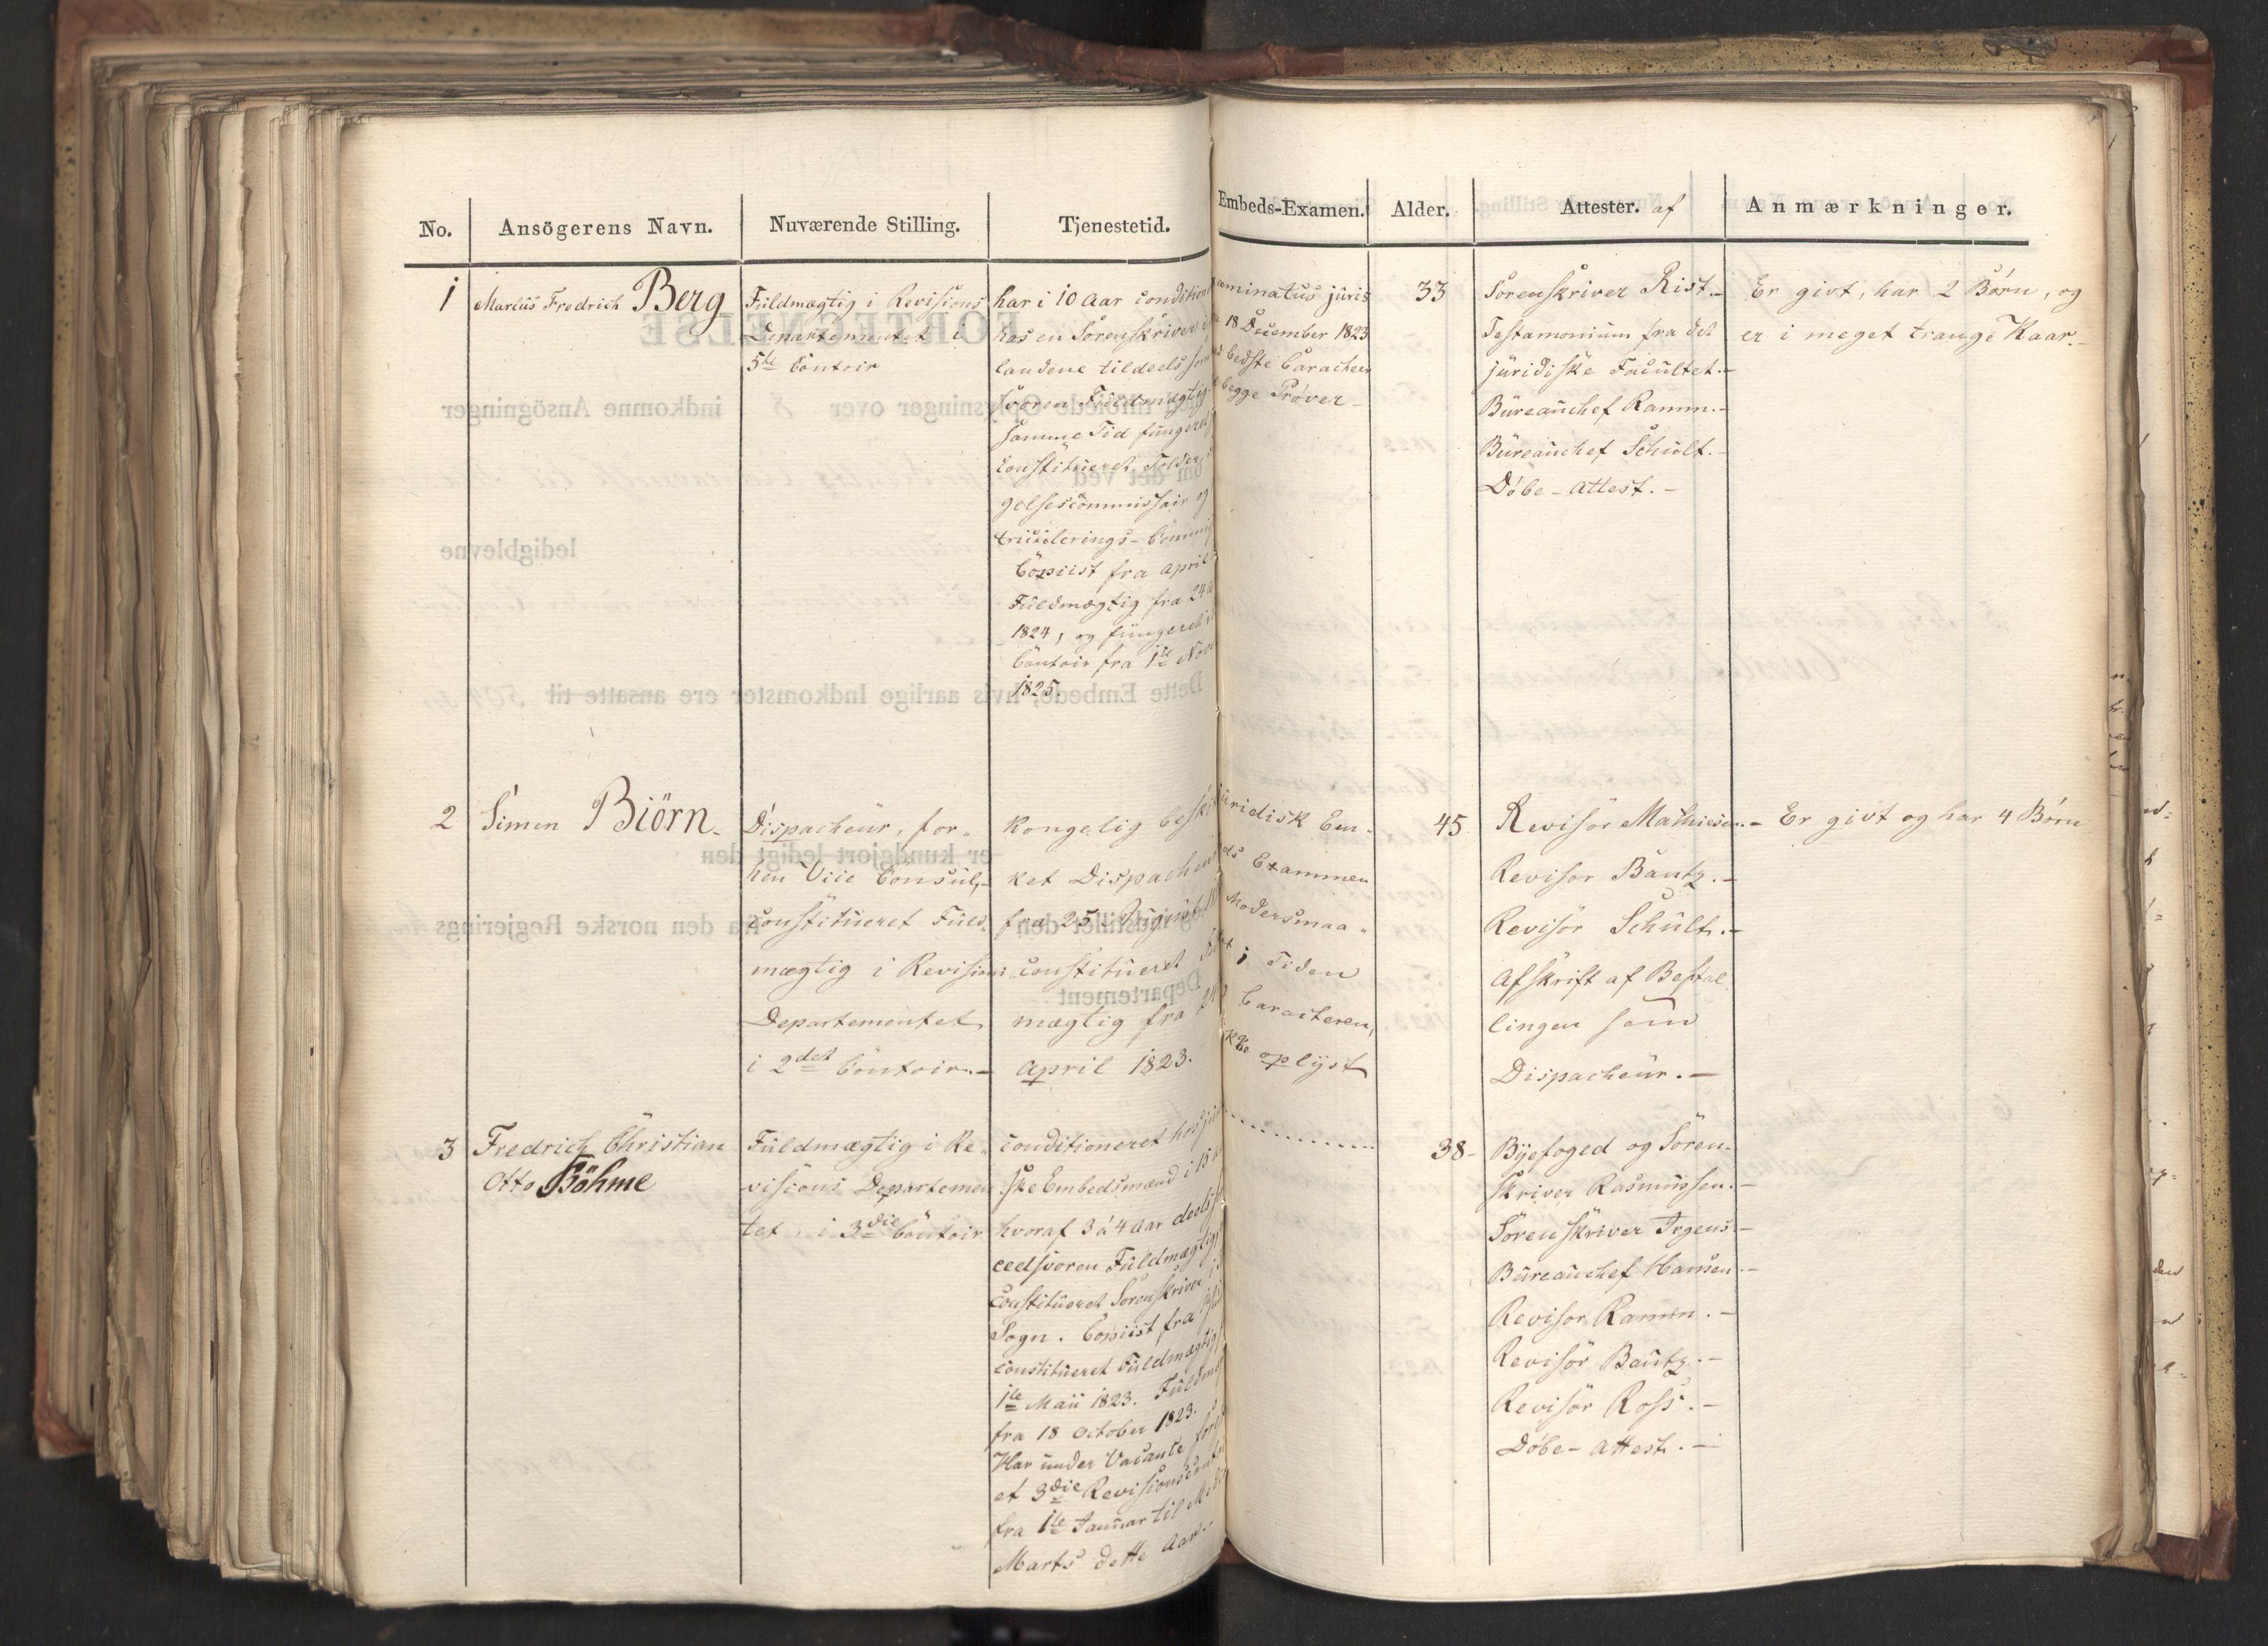 No.
Ansögerens Navn.
Nuværende Stilling.
Tjenestetid.
Embeds-Examen.
Alder.
Attester. af
Anmærkninger.
1
Marius Fredrich Berg
Fuldmægtig i Revisions
Departementet i
5te Contoir
har i 10 Aar condition
hos en Sorenskriver i
landene tildeels som
svoren Fuldmægtig
samme Tid fungeret
constitueret Solder,
gelsescommissair og
triculerings-Commis
Copiist fra April
Fuldmægtig fra 24
1824, og fungeret i
Contoir fra 1te Nov
1825.
xaminatus juris
18 December 1823
bedste Caracteer
begge Prøver
33
Sorenskriver Rist.-
Testamonium fra det
juridiske Facultet.-
Büreauchef Ramm.-
Büreauchef Schult.-
Døbe-Attest.-
Er givt, har 2 Børn, og
er i meget trange Kaar.-
2
Simen Biörn.
Dispacheur, for-
hen Vice Consul,
constitueret Fuld-
mægtig i Revisions
Departementet
i 2det Contoir.-
Kongelig beski
ket Dispacheur
fra 25 August
constitueret
mægtig fra 24
April 1823.
juridisk Em-
ds Exammen
Modersmaa-
i Tiden
Caracteren,
kke oplyst
45
Revisor Mathiesen.-
Revisor Bautz.-
Revisor Schult.-
Afskrift af Bestal
lingen som
Dispacheur.-
Er givt og har 4 Børn
3
Fredrich Christian
Otto Böhme
Fuldmægtig i Re-
visions Departemen
tet, i 3die Contoir
conditioneret hos ju
ske Embedsmænd i 15
hvoraf 3 à 4 Aar deels
eedsvoren Fuldmægtig
constitueret Sorenskriver i
Sogn. Copiist fra
constitueret Fuldmægtig
1te Maii 1823. Fuldm
fra 18 October 1823.
Har under Vacance fore
et 3die Revisionscont
fra 1te Januar til
Marts dette Aar.-
38-
Byefoged og Soren-
skriver Rasmussen.-
Sorenskriver Irgens.-
Büreauchef Hansen.-
Revisor Ramm.-
Revisor Bautz.-
Revisor Ross.-
Døbe-Attest.-